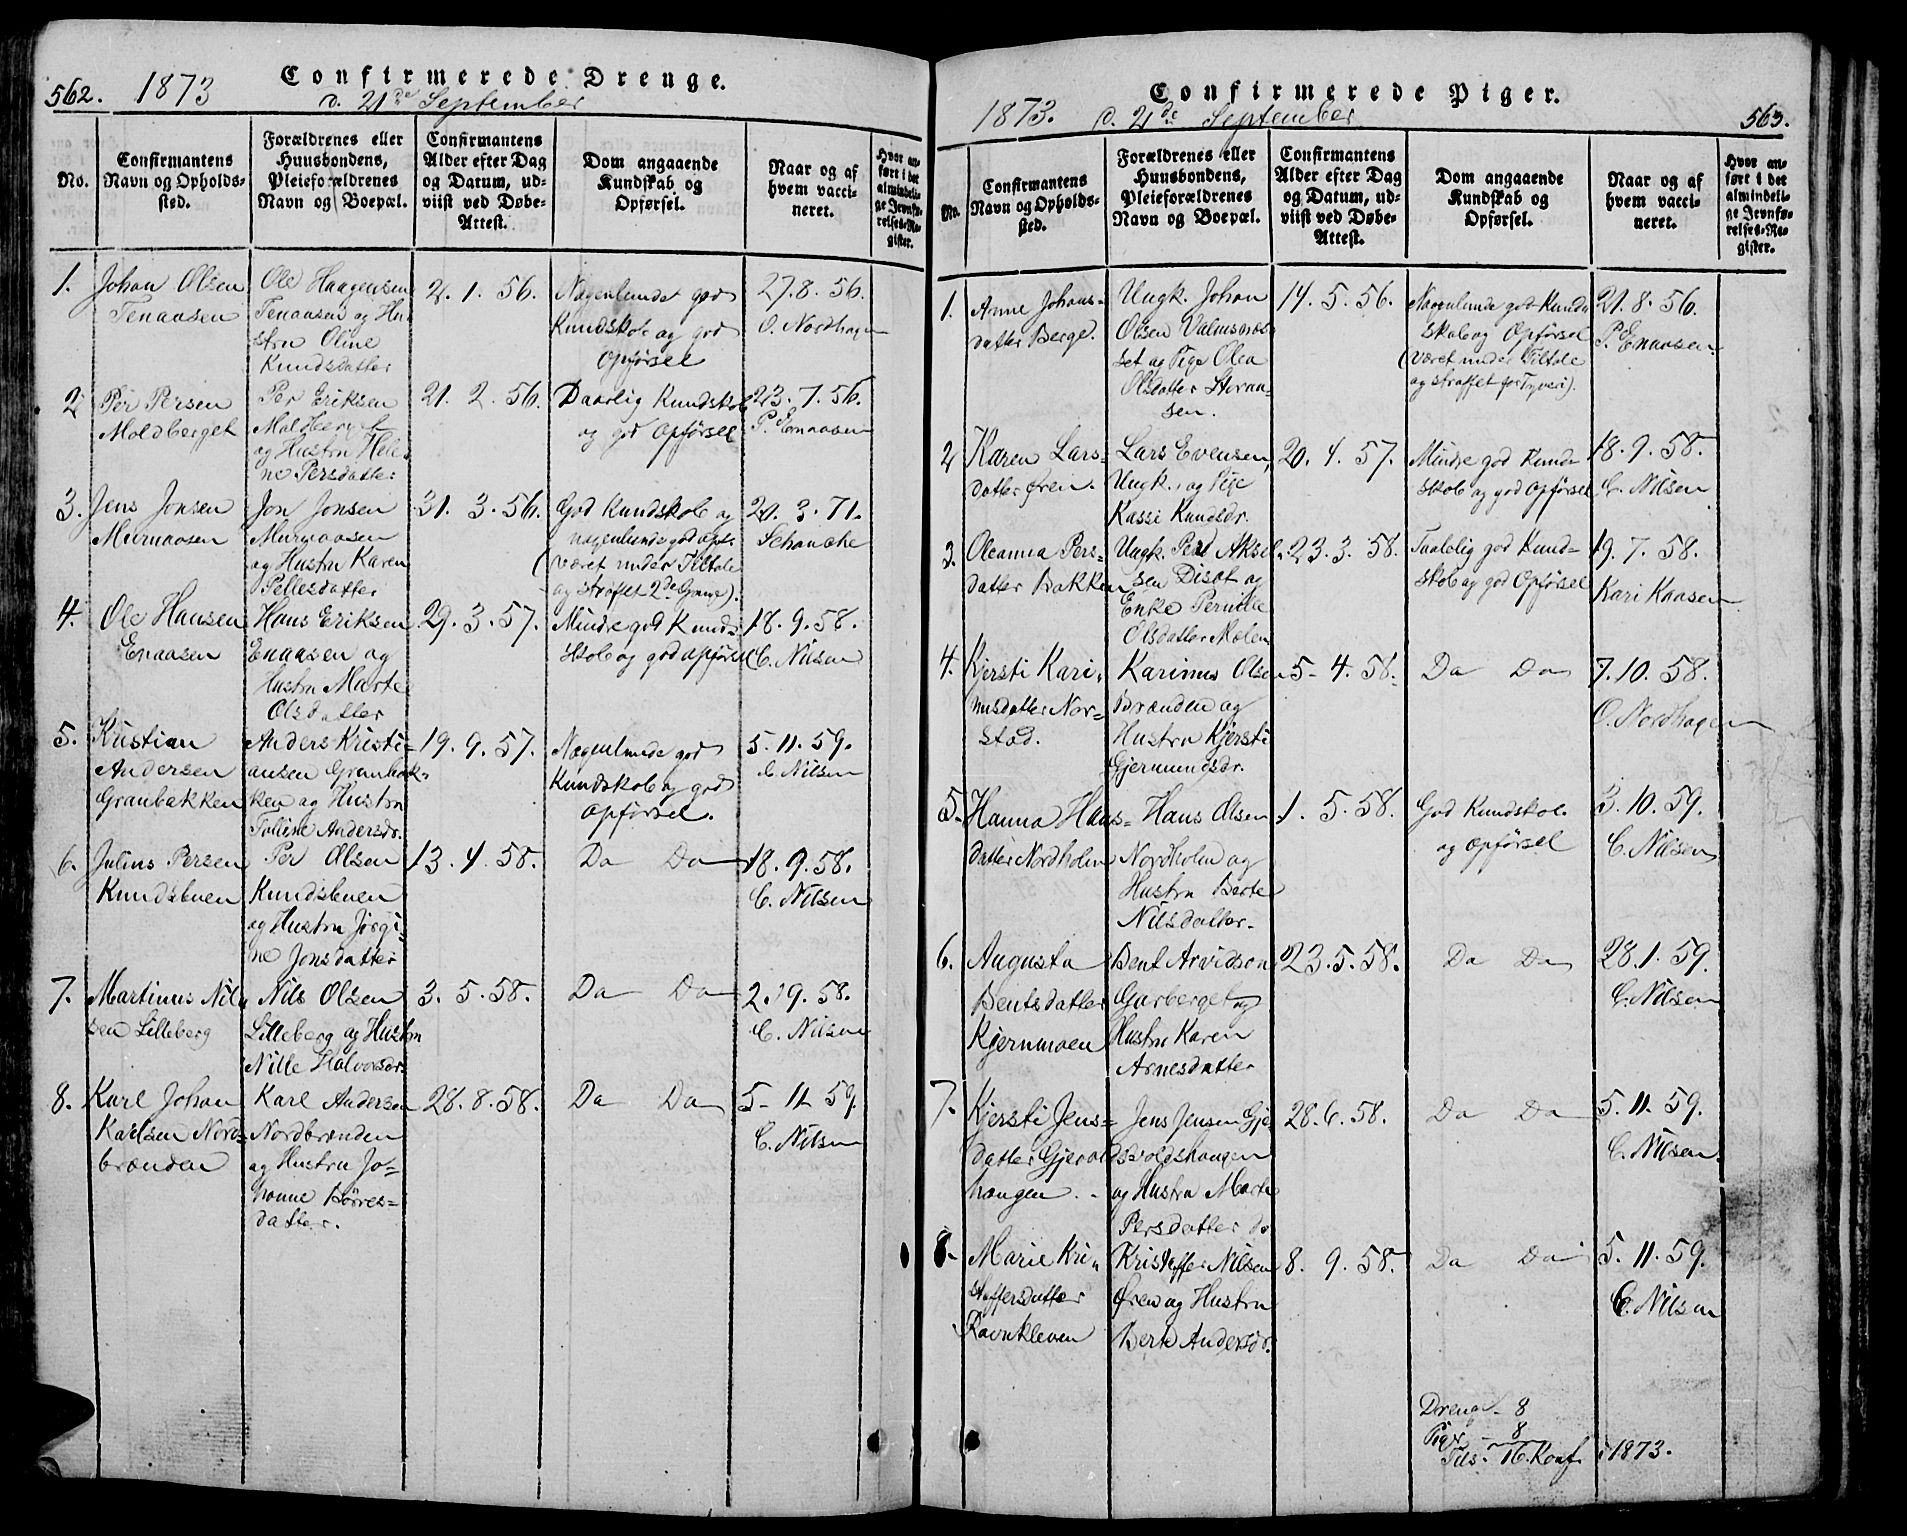 562. 1873 Confirmerede Drenge.
d. 21de September
No.
Confirmantens
Navn og Opholds-
sted.
Forældrenes eller
Huusbondens,
Pleieforældrenes
Navn og Boepæl.
Confirmantens
Alder efter Dag
og Datum, ud-
viist ved Døbe-
Attest.
Dom angaaende
Kundskab og
Opførsel.
Naar og af
hvem vacci-
neret.
Hvor an-
ført i det
almindeli-
ge Jevnfø-
relses-Re-
gister.
1.
Johan Olsen
Tenaasen
Ole Haagensen
Tenaasen og Hu-
stru Oline
Knudsdatter
2. 1. 56.
Nogenlunde god
Kundskab og god
Opførsel
27. 8. 56.
O. Nordhagen
2
Per Persen
Moldberget
Per Eriksen
Moldberget
og Hustru Hele-
ne Persdatter
21. 2. 56.
Daarlig Kundskab
og god Opførsel
23. 7. 56.
P. Enaasen
3.
Jens Jonsen
Murmaasen
Jon Jonsen
Murmaasen
og Hustru Karen
Pellesdatter
31. 3. 56.
God Kundskab og
nogenlunde god Opf.
(været under Tiltale
og straffet 2de Gange).
20. 3. 71.
Schanche
4.
Ole Hansen
Enaasen
Hans Eriksen
Enaasen og
Hustru Marte
Olsdatter
29. 3. 57.
Mindre god Kund-
skab og god Opførsel
18. 9. 58.
C. Nilsen
5.
Kristian
Andersen
Granbakken
Anders Kristi-
ansen Granbak-
ken og Hustru
Andersdr.
19. 9. 57.
Nogenlunde god
Kundskab og god
Opførsel.
5. 11. 59.
C. Nilsen
6.
Julius Persen
Knudsbuen
Per Olsen
Knudsbuen
og Hustru Jørgi-
ne Jonsdatter
13. 4. 58.
Do Do
18. 9. 58.
C. Nilsen
7.
Martinus Nil-
sen Lilleberg
Nils Olsen
Lilleberg og Hustru
Nille Halvorsdr.
3. 5. 58.
Do Do
2. 9. 58.
C. Nilsen
8.
Karl Johan
Karlsen Nord-
brænden
Karl Andersen
Nordbrænden
og Hustru Jo-
hanne Børres-
datter.
28. 8. 58.
Do Do
5. 11 59.
C. Nilsen
Confirmerede Piger. 563.
1873. d. 21de September
No.
Confirmantens
Navn og Opholds-
sted.
Forældrenes eller
Huusbondens,
Pleieforældrenes
Navn og Boepæl.
Confirmantens
Alder efter Dag
og Datum, ud-
viist ved Døbe-
Attest.
Dom angaaende
Kundskab og
Opførsel.
Naar og af
hvem vacci-
neret.
Hvor an-
ført i det
almindeli-
ge Jevnfø-
relses-Re-
gister.
1.
Anne Johans-
datter Berget
Ungk. Johan
Olsen Valmsnæs-
set og Pige Olea
Olsdatter Storaa-
sen.
14. 5. 56.
Nogenlunde god Kund-
skab og Opførsel
(været under Tiltale
og straffet for Tyveri).
21. 8. 56.
P. Enaasen.
2
Karen Lars-
datter Øren.
Lars Evensen,
Ungk. og Pige
Kassi Knudsdr.
20. 4. 57.
Mindre god Kund-
skab og god Opførsel
18. 9. 58.
C. Nilsen
3.
Oleanna Pers-
datter Bakken
Ungk. Peder Aksel-
sen Diset og
Enke Pernille
Olsdatter Moen
23. 3. 58.
Taalelig god Kund-
skab og god Opførsel
19. 7. 58.
Kari Kaasen
4.
Kjersti Kari-
nusdatter Nor-
stad.
Karinus Olsen
Brænden og
Hustru Kjersti
Gjermundsdr.
5. 4. 58.
Do Do
7. 10. 58.
O. Nordhagen
5.
Hanna Hans-
datter Nordholm
Hans Olsen
Nordholm og
Hustru Berte
Nilsdatter.
1. 5. 58.
God Kundskab
og Opførsel
3. 10. 59.
C. Nilsen
6.
Augusta
Bentsdatter
Kjernmoen
Bent Arvidson
Garberget og
Hustru Karen
Arnesdatter
23. 5. 58.
Do Do
28. 1. 59.
C. Nilsen
7.
Kjersti Jens-
datter Gjerolds-
haugen.
Jens Jensen Gje-
voldshaugen
og Hustru Marte
Persdatter do
28. 6. 58.
Do Do
5. 11. 59.
C. Nilsen.
8.
Marie Kri-
stoffersdatter
Ravnkleven
Kristoffer Nilsen
Øren og Hustru
Berte Andersdr.
8. 9. 58.
Do Do
5. 11. 59.
C. Nilsen
Drenge - 8
Piger - 8
Tils. 16. Konf. i 1873.